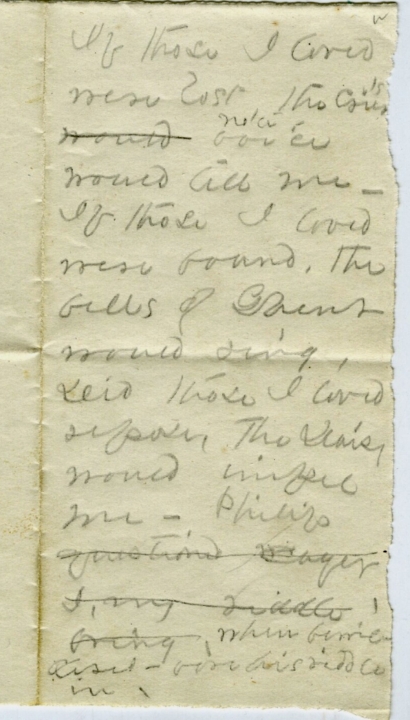 If those I loved
were lost the Crier's
note
would voice
would tell me –
If those I loved
were found, the
bells of Ghent
would ring,
Did those I loved
repose, the Daisy
would impel
me – Philip
questioned eager
I, my riddle
bring, when bewil-
dered – bore his riddle
in.